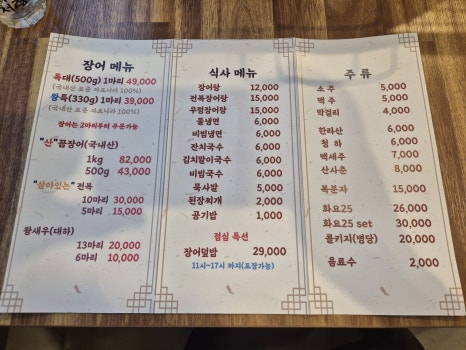 장어 메뉴
특대(500g) 1마리 49,000
(국내산 토종 자포니카 100%)
왕특(330g) 1마리 39,000
(국내산 토종 자포니카 100%)
장어는 2마리부터 주문가능
"산"꼼장어(국내산)
1kg 82,000
500g 43,000
"살아있는" 전복
10마리 30,000
5마리 15,000
왕새우(대하)
13마리 20,000
6마리 10,000
식사 메뉴
장어탕 12,000
전복장어탕 15,000
우렁장어탕 15,000
물냉면 6,000
비빔냉면 6,000
잔치국수 6,000
김치말이국수 6,000
비빔국수 6,000
묵사발 5,000
된장찌개 2,000
공기밥 1,000
점심 특선
장어덮밥 29,000
11시~17시 까지(포장가능)
주 류
소 주 5,000
맥 주 5,000
막걸리 4,000
한라산 6,000
청 하 6,000
백세주 7,000
산사춘 8,000
복분자 15,000
화요25 26,000
화요25 set 30,000
콜키지(병당) 20,000
음료수 2,000